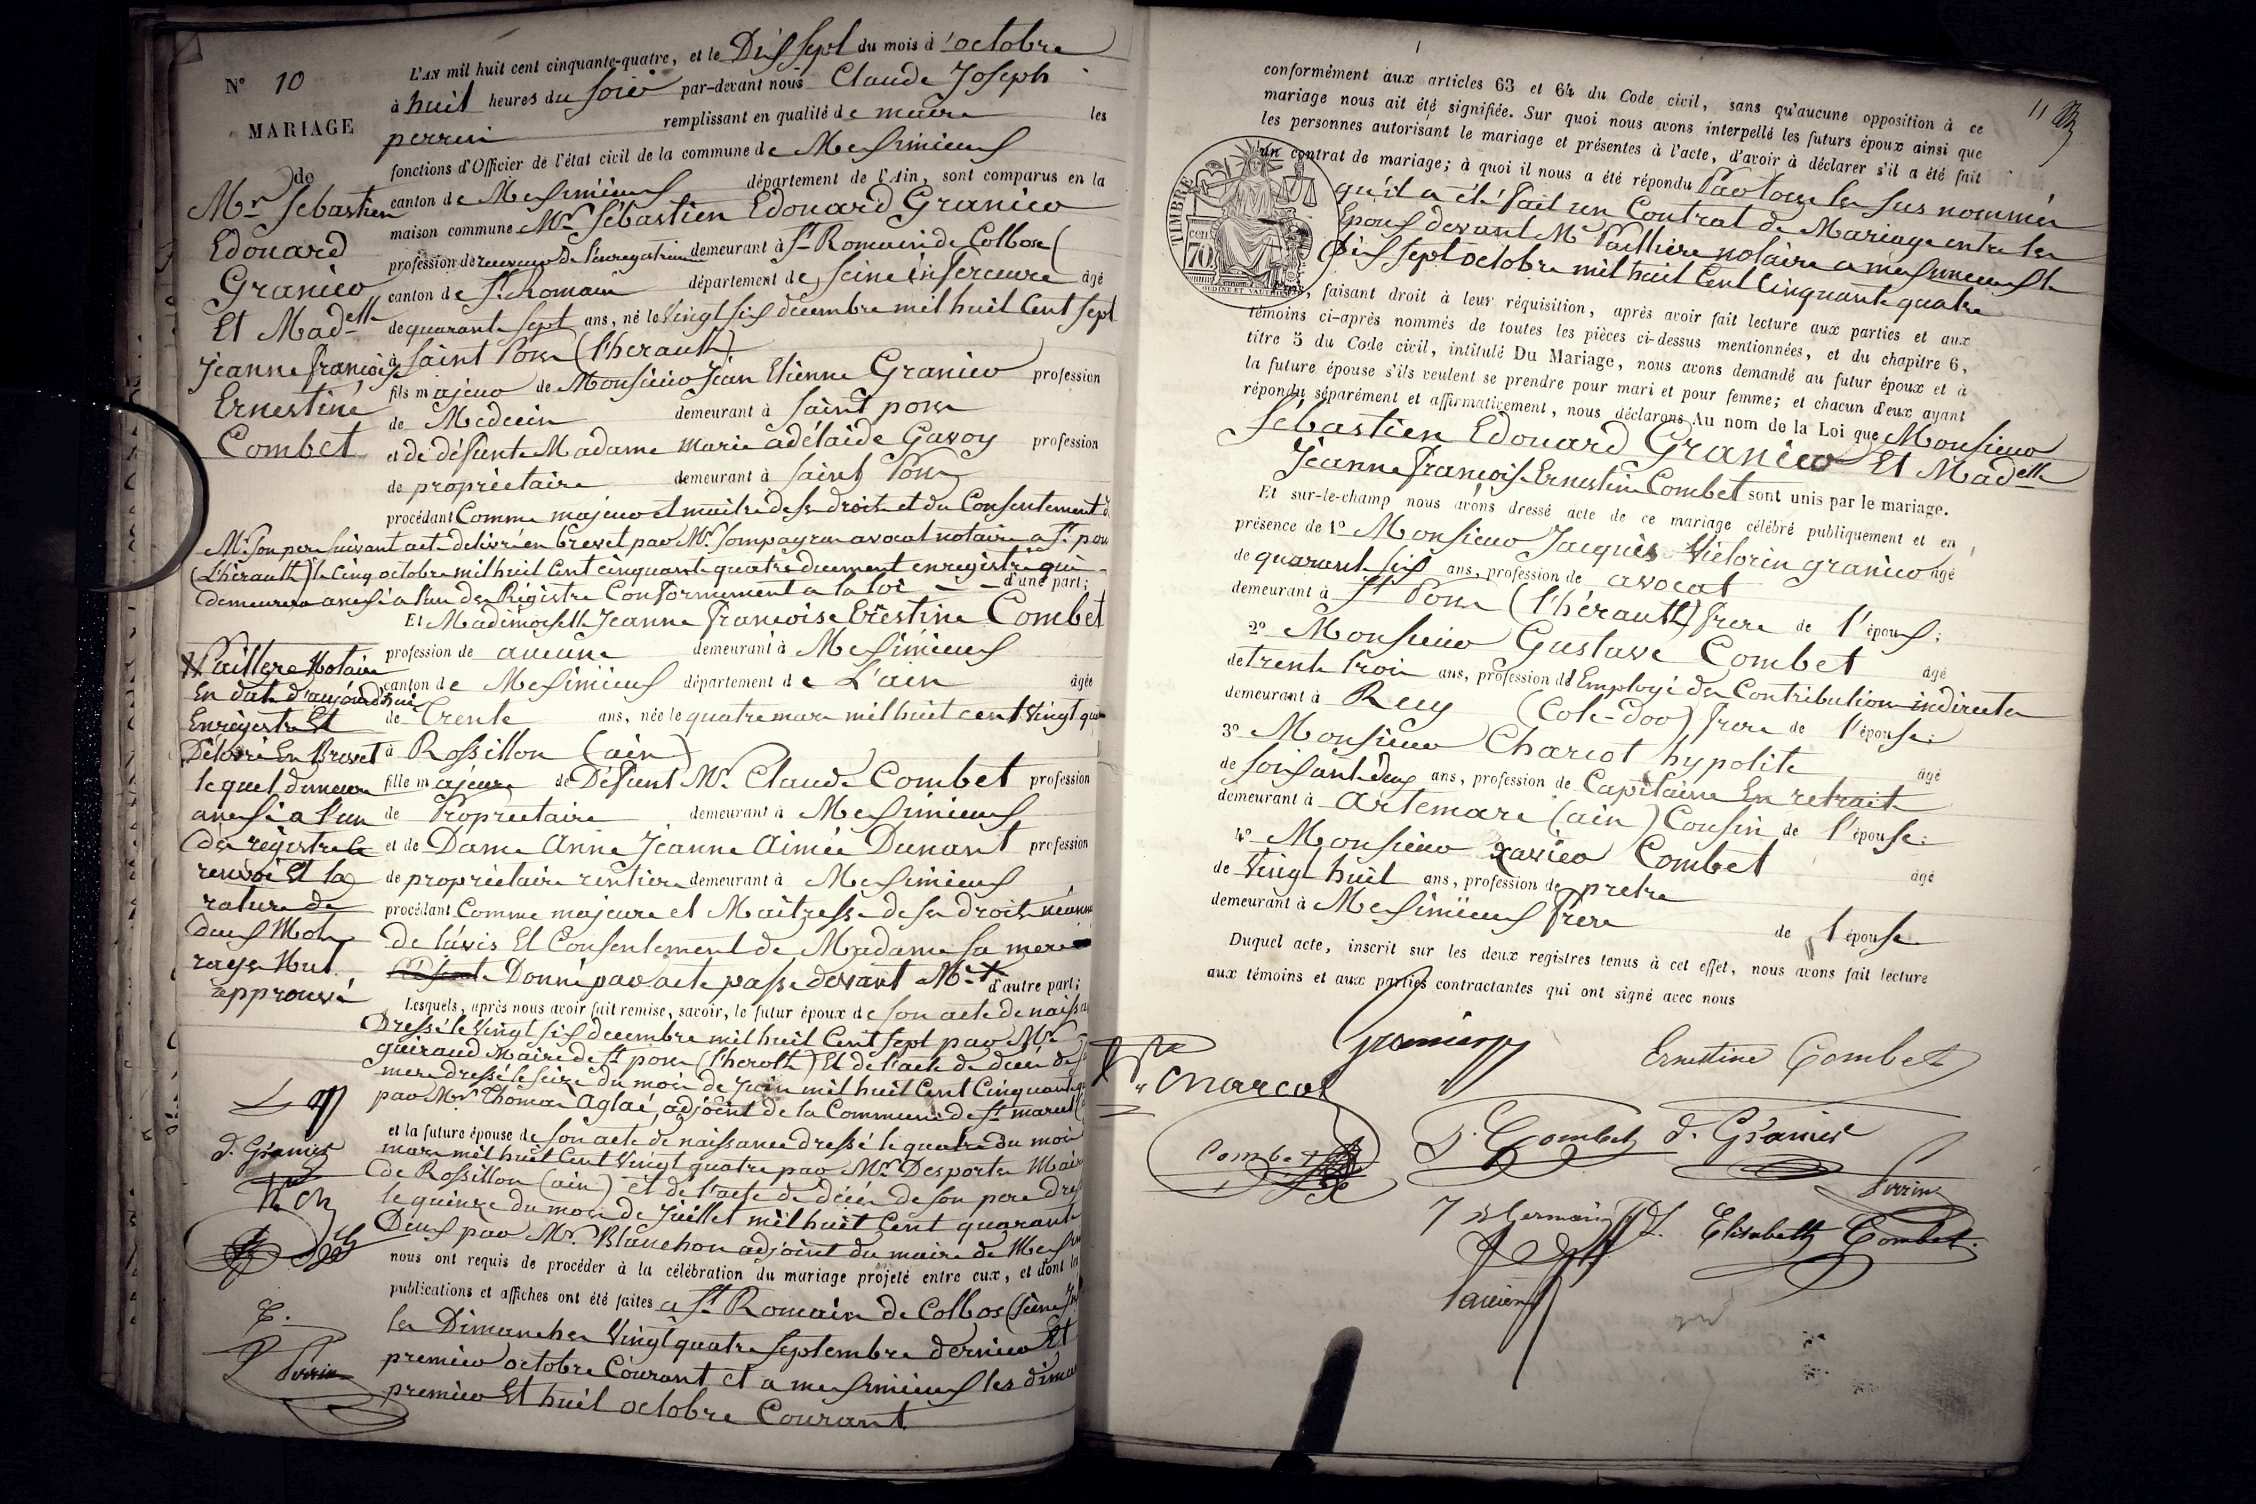 N° 10
MARIAGE
de
Mr Sebastien
Edouard
Granier
Et Madelle
Jeanne françoise
Ernestine
Combet
L'AN mil huit cent cinquante-quatre, et le Dix sept du mois d'octobre
à huit heures du soir par-devant nous Claude Joseph
perrin remplissant en qualité de maire les
fonctions d'Officier de l'état civil de la commune de Meximieux
canton de Meximieux département de l'Ain, sont comparus en la
maison commune Mr Sébastien Edouard Granier
profession de receveur de l'enregistrement demeurant à St Romain de Colbosc
canton de St Romain département de Seine inferieure âgé
de quarante sept ans, né le Vingt six décembre mil huit Cent sept
à Saint Pons (l'herault)
fils majeur de Monsieur Jean Etienne Granier profession
de Medecin demeurant à Saint pons
et de défunte Madame Marie adélaïde Gavoy profession
de propriétaire demeurant à Saint Pons
procédant Comme majeur et maitre de ses droits et du Consentement de
Mr son pere suivant acte delivré en brevet par Mr avocat notaire a St pons
(L'hérault) le Cinq octobre mil huit Cent cinquante quatre duement enregistré qui
demeurera annexé a l'un des Régistres Conformement a la loi d'une part;
Et Mademoiselle Jeanne Françoise Ernestine Combet
profession de aucune demeurant à Meximieux
canton de Meximieux département de L'ain âgée
de Trente ans, née le quatre mars mil huit cent Vingt qu
à Rossillon (ain)
fille majeure de Défunt Mr Claude Combet profession
de Propriétaire demeurant à Meximieux
et de Dame Anne Jeanne Aimée Dunant profession
de propriétaire rentière demeurant à Meximieux
procédant Comme majeure et Maitresse de ses droits
De l'avis Et Consentement de Madame sa mere
Donné par acte passé devant Me + d'autre part;
+ Paillere Notaire
En date d'aujourd'hui
Enregistré Et
Délivré En Brevet
lequel demeure
annexé a l'un
des régistres Ce
renvoi Et la
rature de
deux Mots
rayés Nul
approuvé
Lesquels, après nous avoir fait remise, savoir, le futur époux de son acte de naiss
Dressé le Vingt six decembre mil huit Cent sept par Mr
guiraud Maire de St pons (l'herolt) Et de l'acte de décés de sa
mere dressé le seize du mois de Juin mil huit Cent Cinquante
par Mr Thomas Aglaé, adjoint de la Commune de St marcel
et la future épouse de son acte de naissance dressé le quatre du mois
mars mil huit Cent Vingt quatre par Mr Desportes Maire
de Rossillon (ain) et de l'acte de décés de son pere dres
le quinze du mois de Juillet mil huit Cent quarante
Deux par Mr Blanchon adjoint du maire de Mex
nous ont requis de procéder à la célébration du mariage projeté entre eux, et dont les
publications et affiches ont été faites a St Romain de Colbos (Seine
les Dimanches Vingt quatre Septembre dernier Et
premier octobre Courant et a meximieux les dima
premier Et huit octobre Courant
d. Granier
Perrin
11
conformément aux articles 63 et 64 du Code civil, sans qu'aucune opposition à ce
mariage nous ait été signifiée. Sur quoi nous avons interpellé les futurs époux ainsi que
les personnes autorisant le mariage et présentes à l'acte, d'avoir à déclarer s'il a été fait
un contrat de mariage; à quoi il nous a été répondu Par tous les sus nommés
qu'il a été fait un Contrat de Mariage entre les
Epoux devant Me Paillere notaire a meximieux le
Dix sept octobre mil huit Cent Cinquante quatre
TIMBRE
cen
70
OUDINÉ ET VAUTHIER
, faisant droit à leur réquisition, après avoir fait lecture aux parties et aux
témoins ci-après nommés de toutes les pièces ci-dessus mentionnées, et du chapitre 6,
titre 5 du Code civil, intitulé Du Mariage, nous avons demandé au futur époux et à
la future épouse s'ils veulent se prendre pour mari et pour femme; et chacun d'eux ayant
répondu séparément et affirmativement, nous déclarons Au nom de la Loi que Monsieur
Sébastien Edouard Granier Et Madelle
Jeanne françoise Ernestine Combet sont unis par le mariage.
Et sur-le-champ nous avons dressé acte de ce mariage célébré publiquement et en
présence de 1° Monsieur Jacques Victorin granier âgé
de quarante six ans, profession de avocat
demeurant à St Pons (l'hérault) frere de l'époux;
2° Monsieur Gustave Combet âgé
de trente trois ans, profession d'Employé des Contributions indirectes
demeurant à Reuy (Cote-Dor) frere de l'épouse;
3° Monsieur Charcot hypolite âgé
de soixante deux ans, profession de Capitaine En retrait
demeurant à Artemare (ain) Cousin de l'épouse;
4° Monsieur xavier Combet âgé
de Vingt huit ans, profession de pretre
demeurant à Meximieux frere de l'épouse
Duquel acte, inscrit sur les deux registres tenus à cet effet, nous avons fait lecture
aux témoins et aux parties contractantes qui ont signé avec nous
Granier
Ernestine Combet
Charcot
Combet
G. Combet
d. Granier
Perrin
Elisabeth Combet